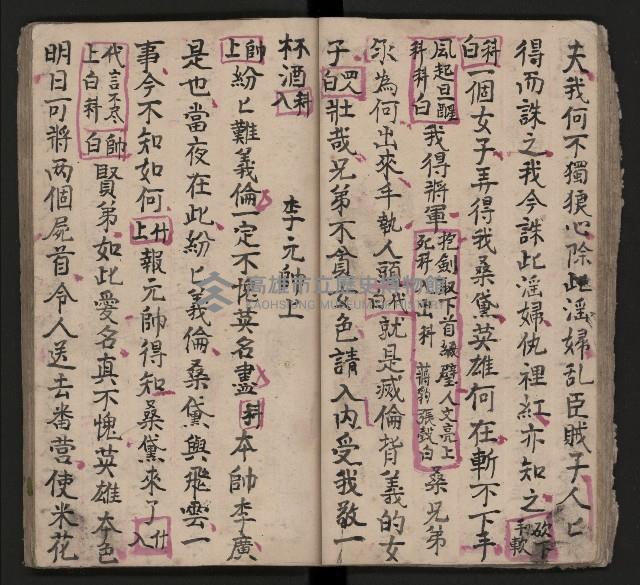 夫我何不獨狼心除此淫婦乱臣賊子人匕
得而誅之我今誅此淫婦仇裡紅亦知之 砍下手軟
科白 一個女子弄得我桑黛英雄何在斬不下手
風起旦醒科科白 我得將軍 抱劍取下首級壁人文亮上死科 出科 蔣豹張毅白 桑兄弟
永為何出來手执人頭 代白 就是㓕倫背義的女
子 四人白 壮哉兄弟不貪女色請入內受我敬一
杯酒 科入 李元帥上
帥上 紛匕難義倫一定不 英名盡 科 本帥李廣
是也當夜在此紛匕義倫桑黛與飛雲一
事今不知如何 卄上 報元帥得知桑黛來了 卄入
代上言不尽白科 帥白 賢弟如此愛名真不愧英雄本色
明日可將两個屍首令人送去番营使米花
高雄市立歷史博物館
KAOHSIUNG MUSEUM OF HISTORY